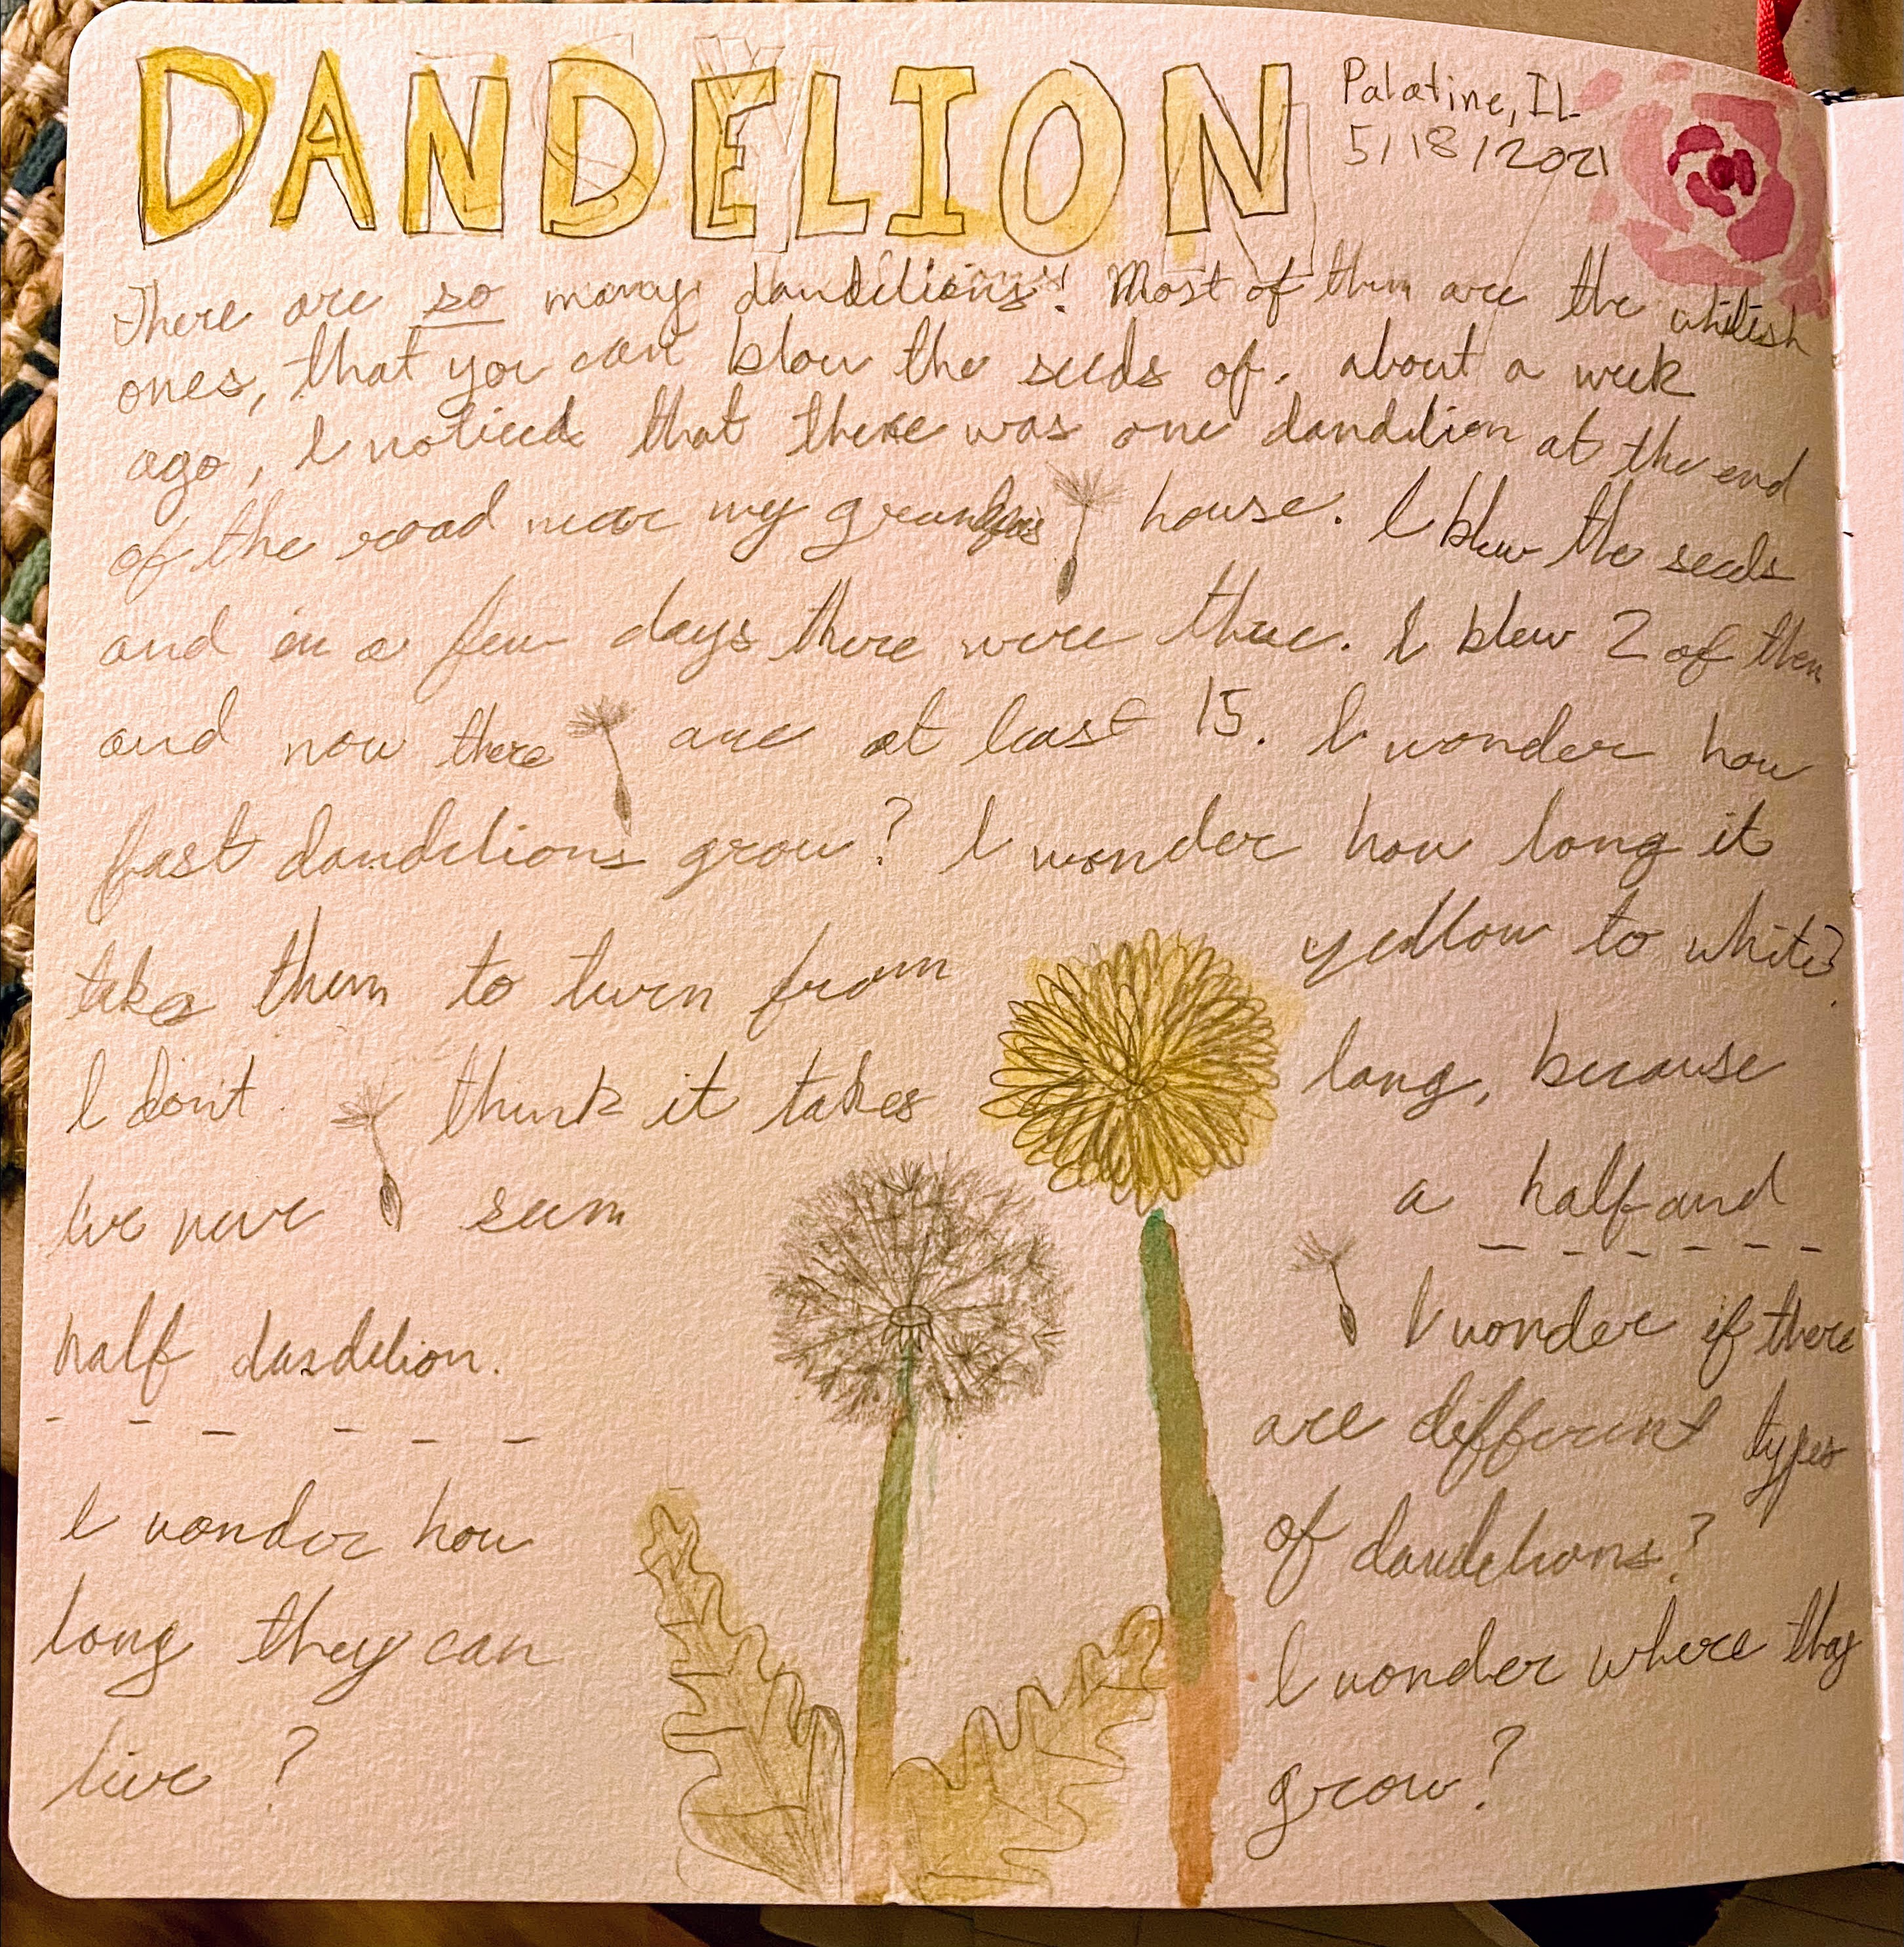 DANDELION
Palatine, IL
5/18/2021
There are so many dandelions! Most of them are the whitish
ones, that you can blow the seeds of. about a week
ago, I noticed that there was one dandelion at the end
of the road near my grandpa's house. I blew the seeds
and in a few days there were three. I blew 2 of them
and now there are at least 15. I wonder how
fast dandelions grow? I wonder how long it
takes them to turn from yellow to white?
I don't think it takes long, because
I've never seen a half and
half dandelion.
I wonder how
long they can
live?
I wonder if there
are different types
of dandelions?
I wonder where they
grow?